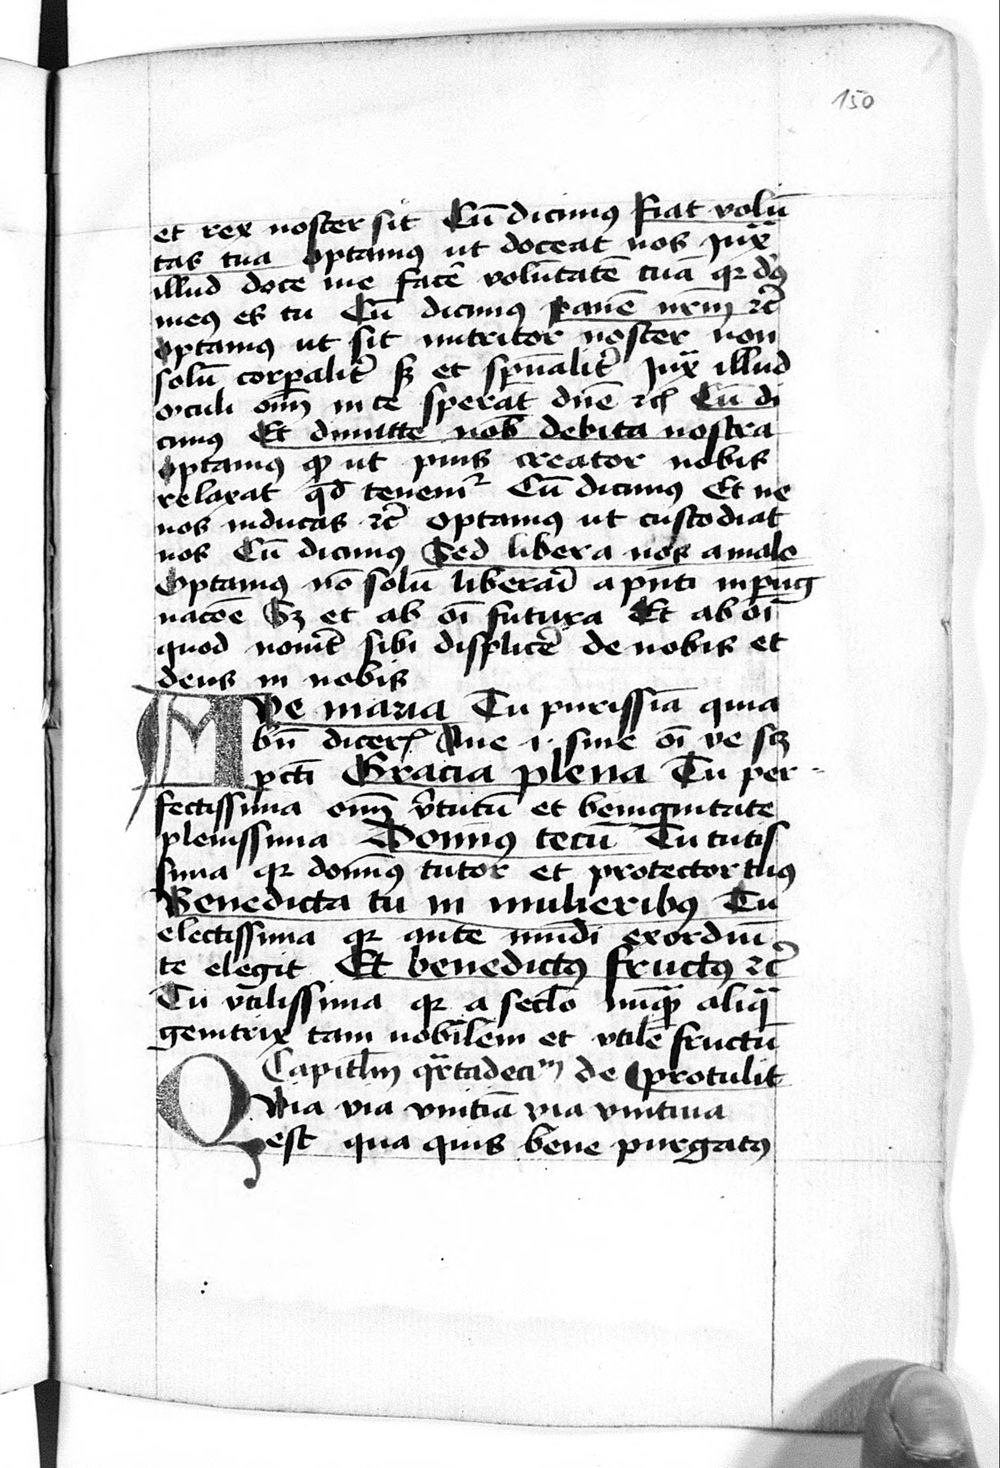 150
et rex noster sit Cū dicimꝰ Fiat volū
tas tua optamꝰ ut doceat nos Juxͣ
illud doce me facē volūtatē tuā qꝛ dꝰ
meꝰ es tu Cū dicimꝰ panē nr̄m ⁊c̄
optamꝰ ut sit nutritor noster non
solū corꝑalit̄ sꝫ et sp̄ualit̄ Juxͣ illud
oculi om̄ in te sperāt dn̄e ⁊c̄ Cū di
cimꝰ Et dimitte nob̄ debita nostra
optamꝰ ꝙ ut pius creator nobis
relaxat qd̄ tenemᷣ Cū dicimꝰ Et ne
nos inducas ⁊c̄ optamꝰ ut custodiat
nos Cū dicimꝰ Sed libera nos a malo
Optamꝰ nō solū liberari a pn̄ti inpug
nacōe Sꝫ et ab oī futura Et ab oī
quod nouit sibi displicē de nobis et
deus in nobis
AVe maria Tu purissīa quia
bn̄ dicerꝭ Aue .i. sine oī ve sꝫ
pct̄i Gracia plena Tu per-
fectissima om̄ v̄tutū et benignitate
plenissima Domīꝰ tecū Tu tutis
sima qꝛ domīꝰ tutor et protector tuꝰ
Benedicta tu in mulieribꝰ Tu
electissima qꝛ ante mūdi exordiū
te elegit Et benedictꝰ fructꝰ ⁊c̄
Tu vtilissima qꝛ a secl̄o nūqꝫ aliqͣ
genitrix tam nobilem et vtilē fructū
Capitl̄m qͣrtadeciᵐ de protulit
QVia via vnitīa via vnitiua
est qua quis bene purgatꝰ